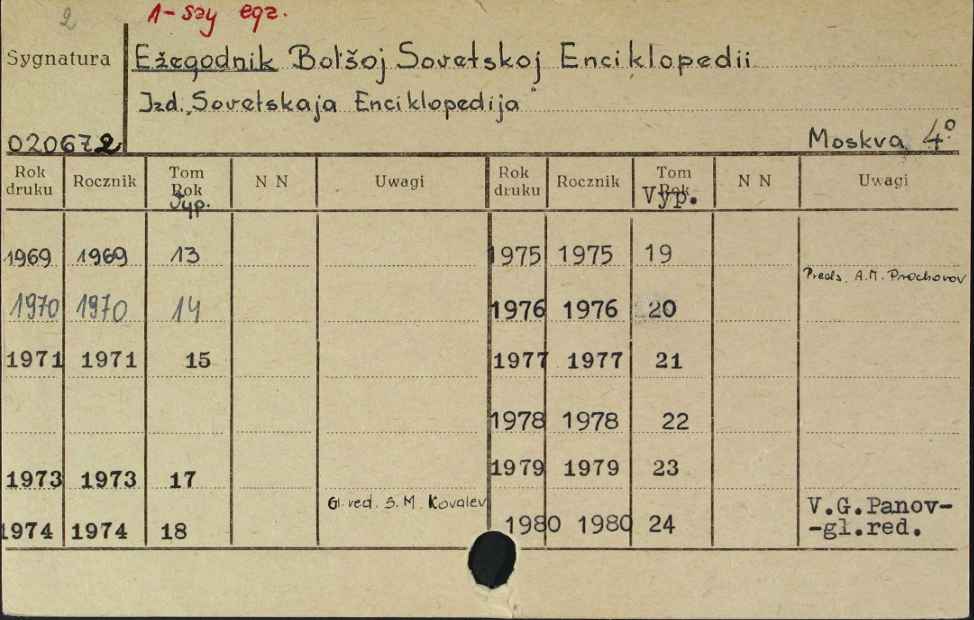 2
1-szy egz.
Sygnatura
Ežegodnik Bol'šoj Sovetskoj Enciklopedii
Izd. „Sovetskaja Enciklopedija"
020672
Moskva 4°
Rok druku Rocznik Tom Rok Vyp. N N Uwagi Rok druku Rocznik Tom Rok Vyp. N N Uwagi
1969 1969 13
1970 1970 14
1971 1971 15
1973 1973 17
Gl. red. S.M. Kovalev
1974 1974 18
1975 1975 19
Preds. A.M. Prochorov
1976 1976 20
1977 1977 21
1978 1978 22
1979 1979 23
1980 1980 24 V.G.Panov-
-gl.red.